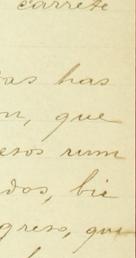 carrete
as has
que
esos rum
dos, bie
greso, que